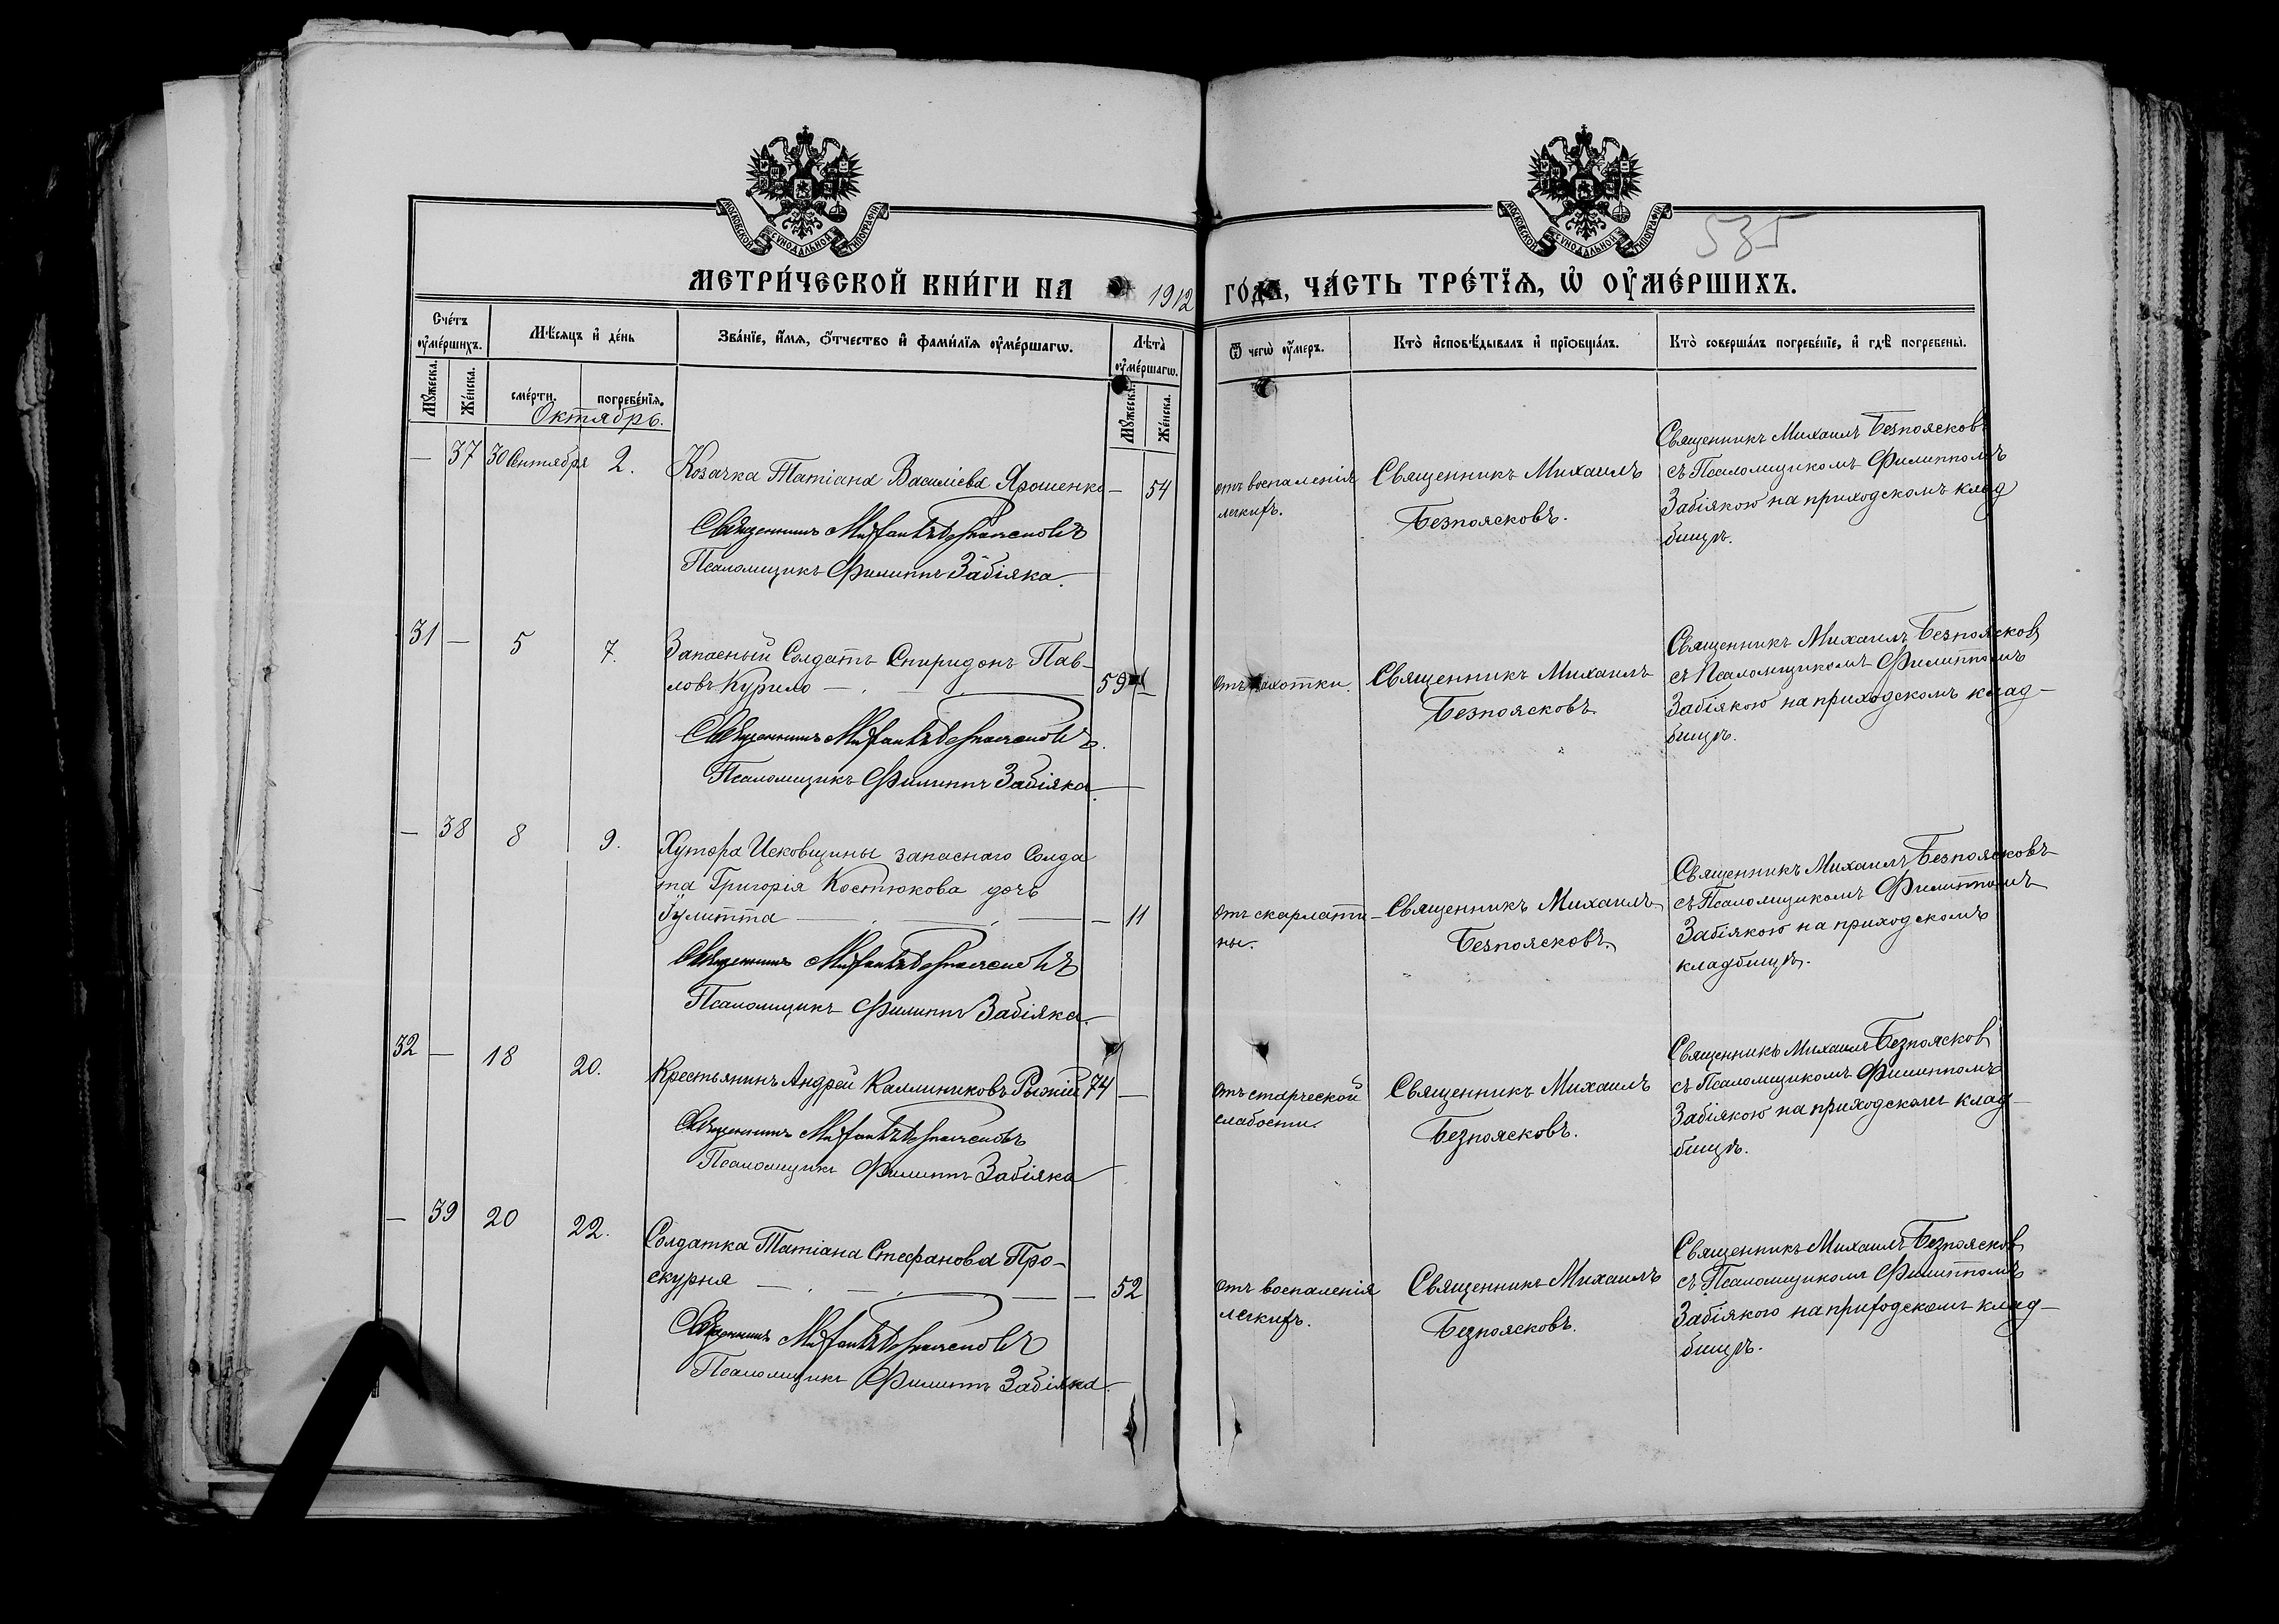 МОСКОВСКОЙ СѴНОДАЛЬНОЙ ТИПОГРАФІИ
МОСКОВСКОЙ СѴНОДАЛЬНОЙ ТИПОГРАФІИ
535
МЕТРИ́ЧЕСКОЙ КНИ́ГИ НА 1912 ГО́ДА, ЧА́СТЬ ТРЕ́ТЇѦ, Ѡ҆ ОУ҆МЕ́РШИХЪ.
Сче́тъ оу҆ме́ршихъ.
Мꙋ́жеска.
Же́нска.
Мѣ́сяцъ и҆ де́нь
сме́рти.
погребе́нїѧ.
Зва́нїе, и҆́мѧ, ѻ҆́тчество и҆ фами́лїѧ оу҆ме́ршагѡ.
Лѣ̀та̀ оу҆ме́ршагѡ.
Мꙋ́жеска.
Же́нска.
Ѿ чегѡ̀ оу҆́меръ.
Кто̀ и҆сповѣ́дывалъ и҆ прїѻбща́лъ.
Кто̀ соверша́лъ погребе́нїе, и҆ гдѣ̀ погребены̀.
Октябрь.
— 37 30 Сентября 2.
Козачка Татіана Василіева Ярошенко — 54
Священникъ Михаилъ Безпоясковъ
Псаломщикъ Филиппъ Забіяка.
отъ воспаленія
легкихъ.
Священникъ Михаилъ
Безпоясковъ.
Священникъ Михаилъ Безпоясков
съ Псаломщикомъ Филиппомъ
Забіякою на приходскомъ клад
бищѣ.
31 — 5 7.
Запасный Солдатъ Спиридонъ Пав-
ловъ Курило — 59 —
Священникъ Михаилъ Безпоясковъ.
Псаломщикъ Филиппъ Забіяка.
Отъ чахотки.
Священникъ Михаилъ
Безпоясковъ
Священникъ Михаилъ Безпоясков
съ Псаломщикомъ Филиппомъ
Забіякою на приходскомъ клад-
бищѣ.
— 38 8 9.
Хутора Исковщины запаснаго Солда
та Григорія Костюкова дочь
Іулитта — 11
Священникъ Михаилъ Безпоясковъ
Псаломщикъ Филиппъ Забіяка.
Отъ скарлати-
ны.
Священникъ Михаилъ
Безпоясковъ.
Священникъ Михаилъ Безпоясковъ
съ Псаломщикомъ Филиппомъ
Забіякою на приходскомъ
кладбищѣ.
32 — 18 20.
Крестьянинъ Андрей Каллиниковъ Рыжій 74 —
Священникъ Михаилъ Безпоясковъ
Псаломщикъ Филиппъ Забіяка
Отъ старческой
слабости.
Священникъ Михаилъ
Безпоясковъ.
Священникъ Михаилъ Безпоясков
съ Псаломщикомъ Филиппомъ
Забіякою на приходскомъ клад-
бищѣ.
— 39 20 22.
Солдатка Татіана Стефанова Про-
скурня — 52
Священникъ Михаилъ Безпоясковъ
Псаломщикъ Филиппъ Забіяка.
Отъ воспаленія
легкихъ.
Священникъ Михаилъ
Безпоясковъ.
Священникъ Михаилъ Безпоясков
съ Псаломщикомъ Филиппомъ
Забіякою на приходскомъ клад-
бищѣ.